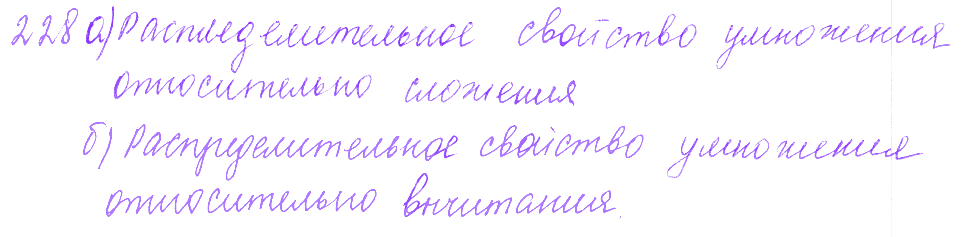 228 а) Распределительное свойство умножения
относительно сложения
б) Распределительное свойство умножения
относительно вычитания.